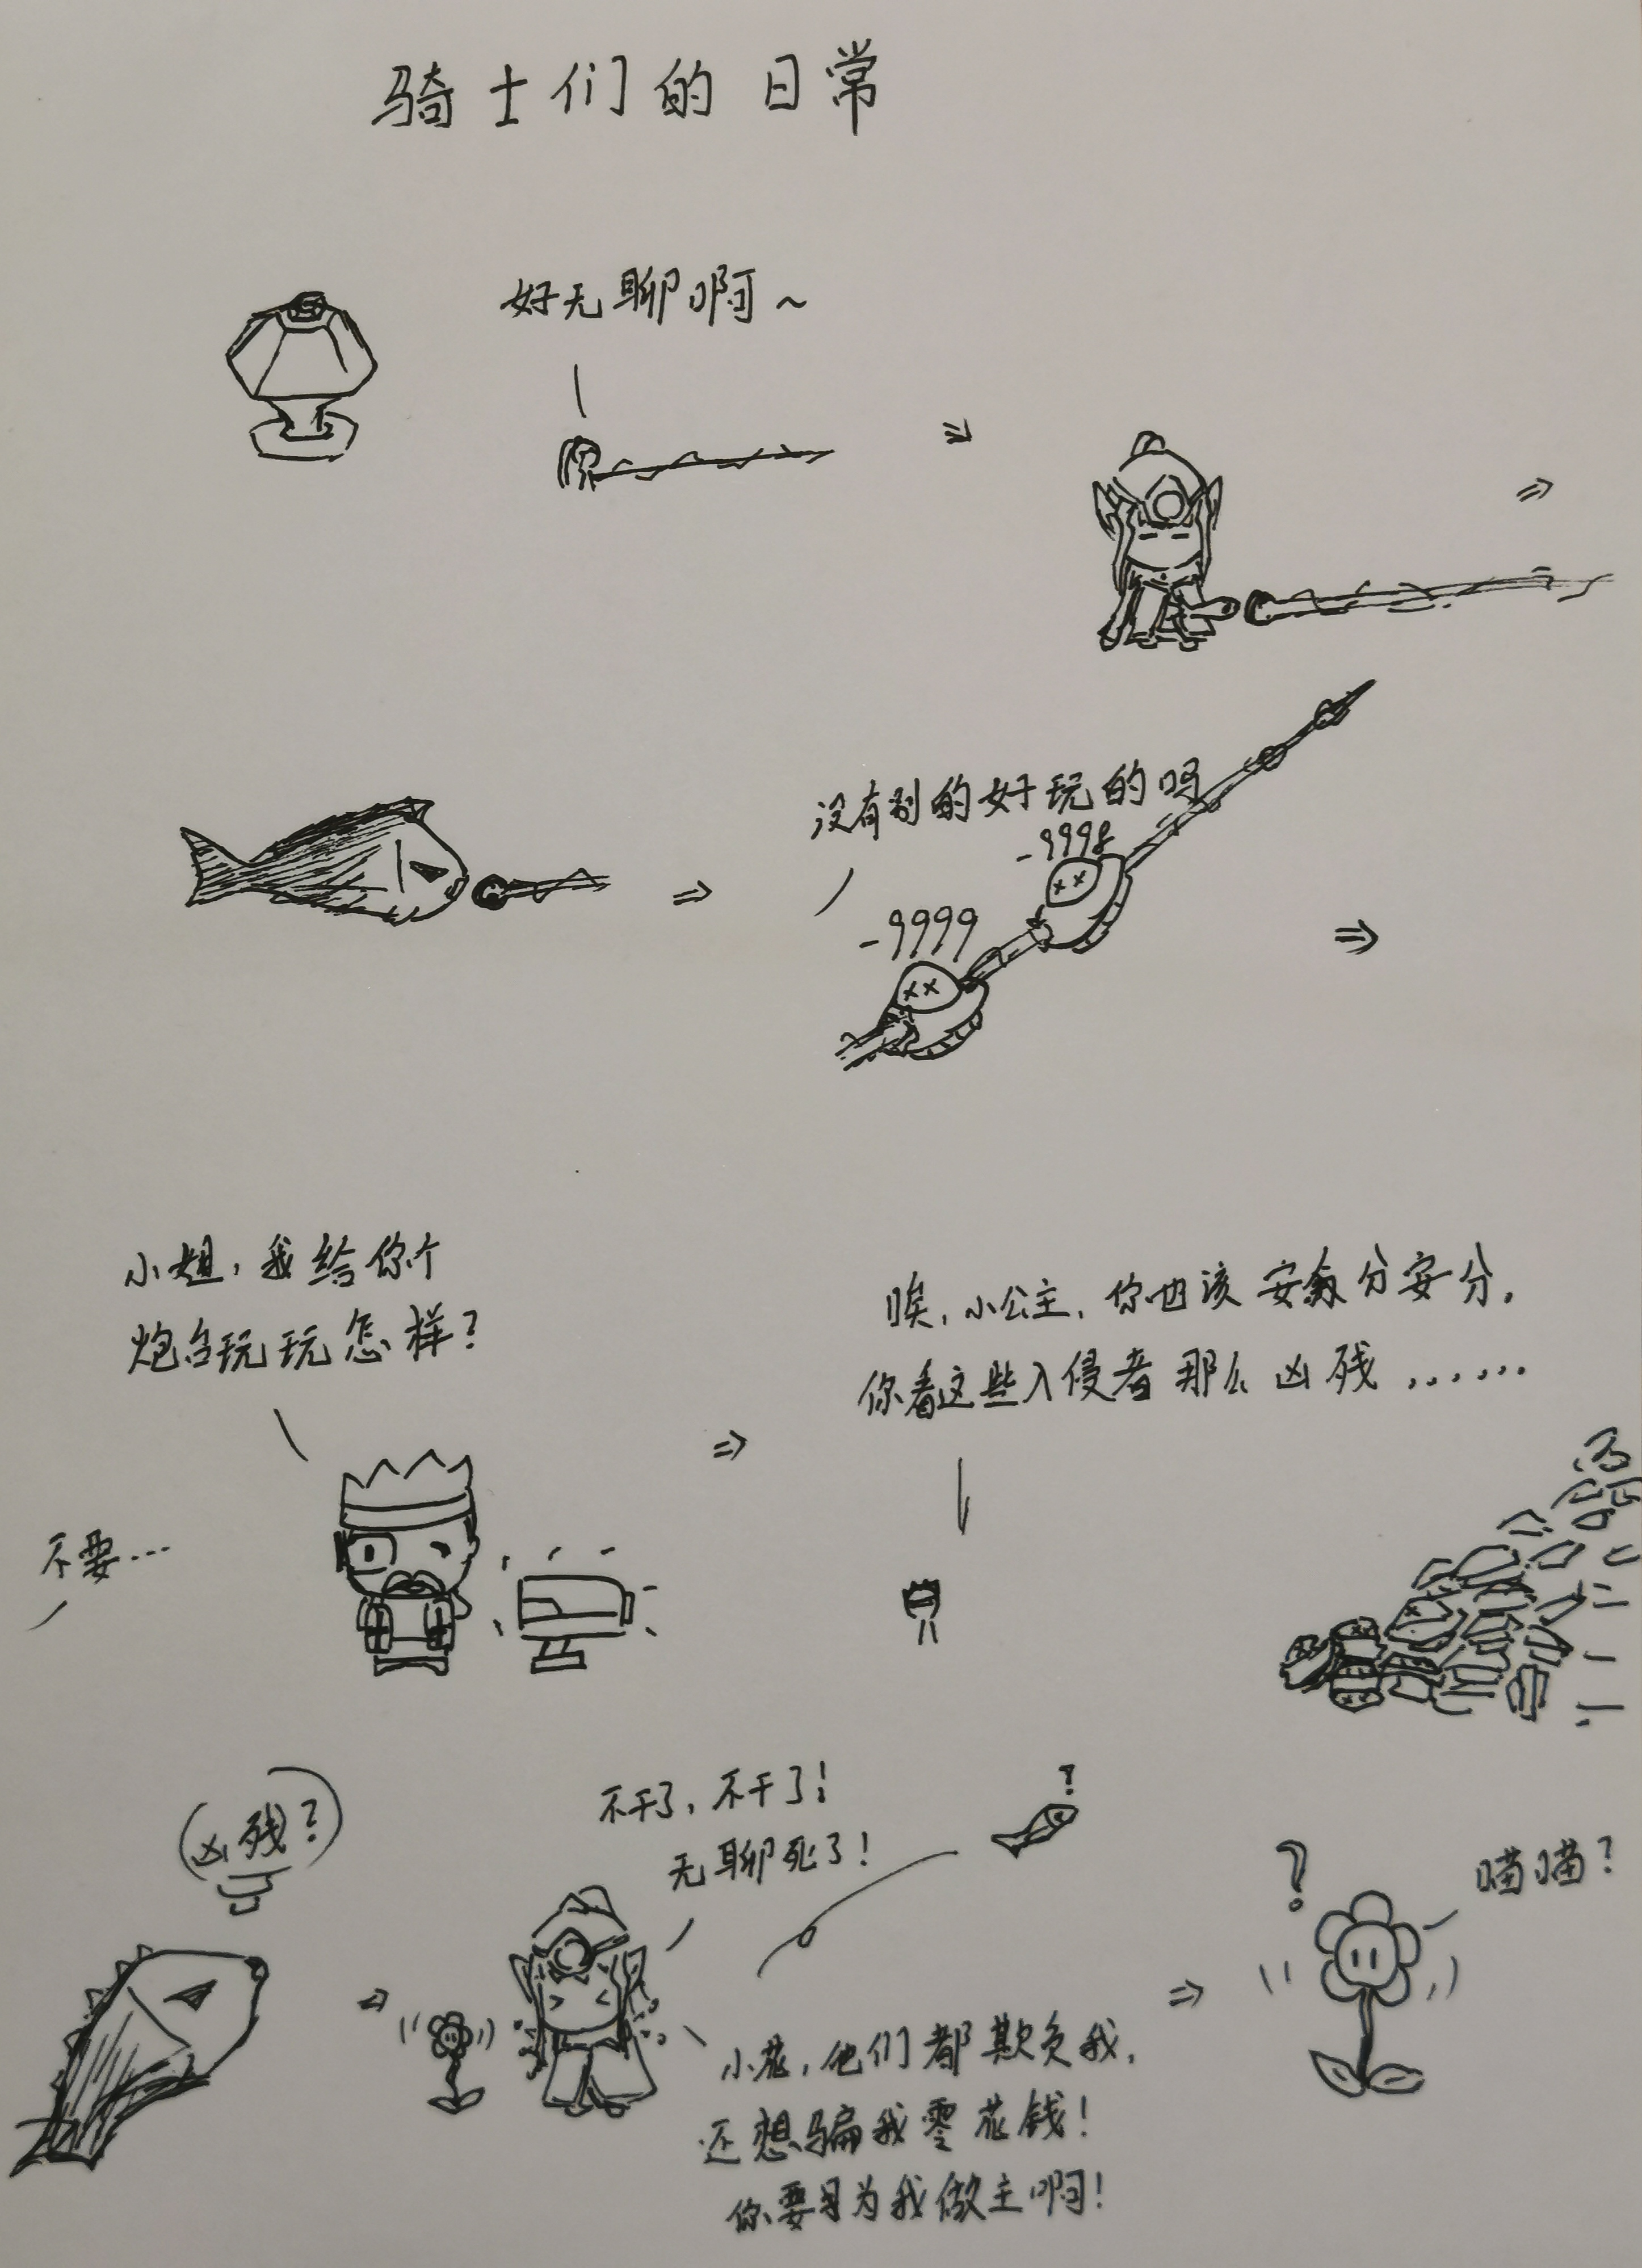 骑士们的日常
好无聊啊~
没有别的好玩的吗
-9998
-9999
小姐,我给你个
炮台玩玩怎样?
不要…
唉,小公主,你也该安分安分,
你看这些入侵者那么凶残……
凶残?
不干了,不干了!
无聊死了!
?
小花,他们都欺负我,
还想骗我零花钱!
你要为我做主啊!
?
喵喵?